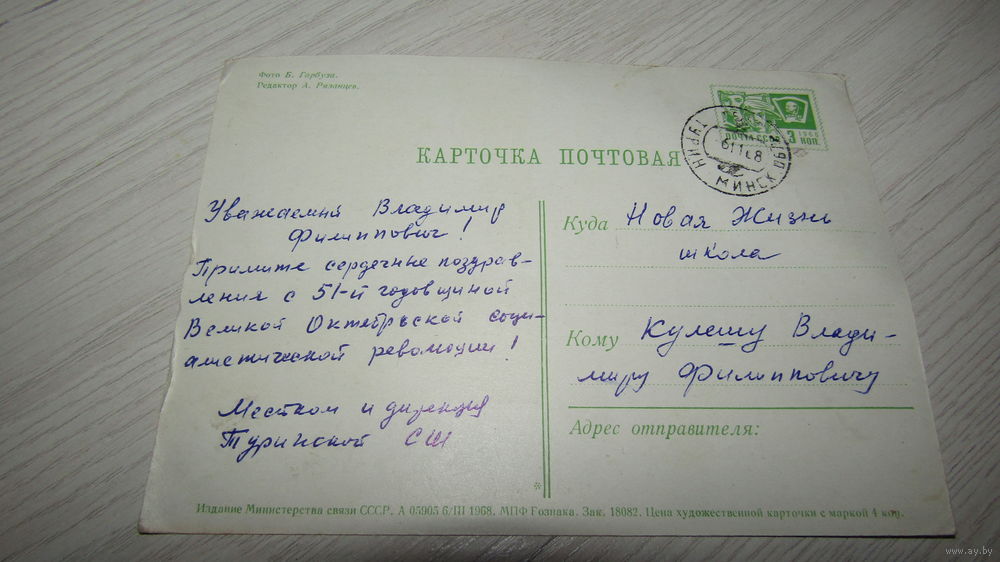 Фото Б. Гарбуза.
Редактор А. Рязанцев.
КАРТОЧКА ПОЧТОВАЯ
ПОЧТА СССР 1966
3 КОП.
ТУРИН
МИНСК
6 11 68
Уважаемый Владимир
Филиппович!
Примите сердечные поздрав-
ления с 51-й годовщиной
Великой Октябрьской соци-
алистической революции!
Местком и дирекция
Туринской СШ
Куда Новая Жизнь
школа
Кому Кулешу Влади-
миру Филипповичу
Адрес отправителя:
Издание Министерства связи СССР. А 05905 6/III 1968. МПФ Гознака. Зак. 18082. Цена художественной карточки с маркой 4 коп.
www.ay.by